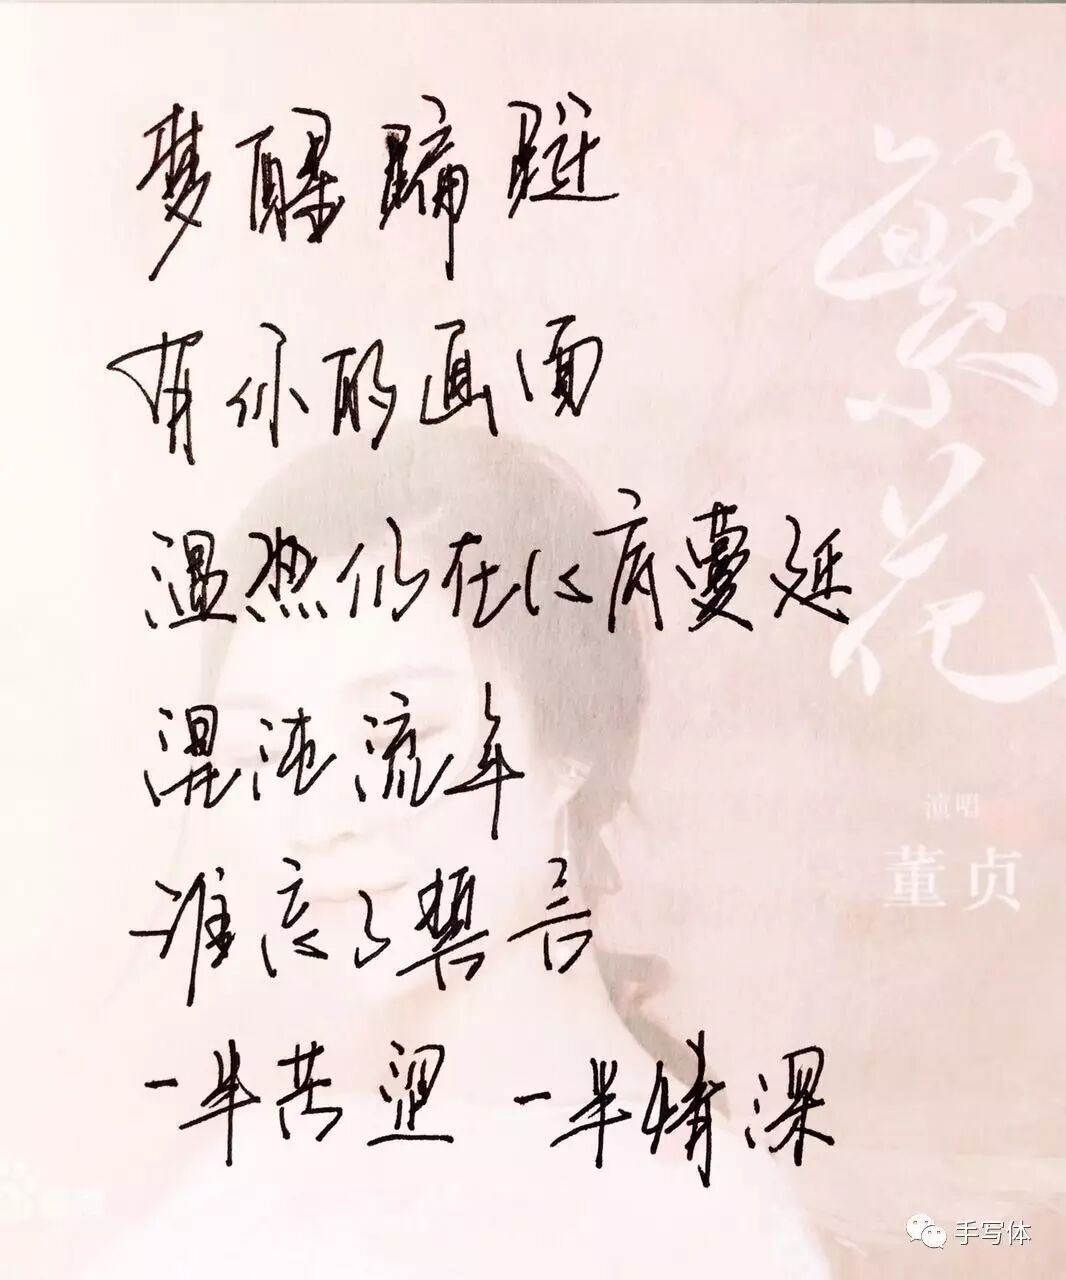 梦醒蹁跹
有你的画面
温热仍在心底蔓延
混沌流年
谁忘了誓言
一半苦涩 一半情深
繁花
演唱
董贞
手写体